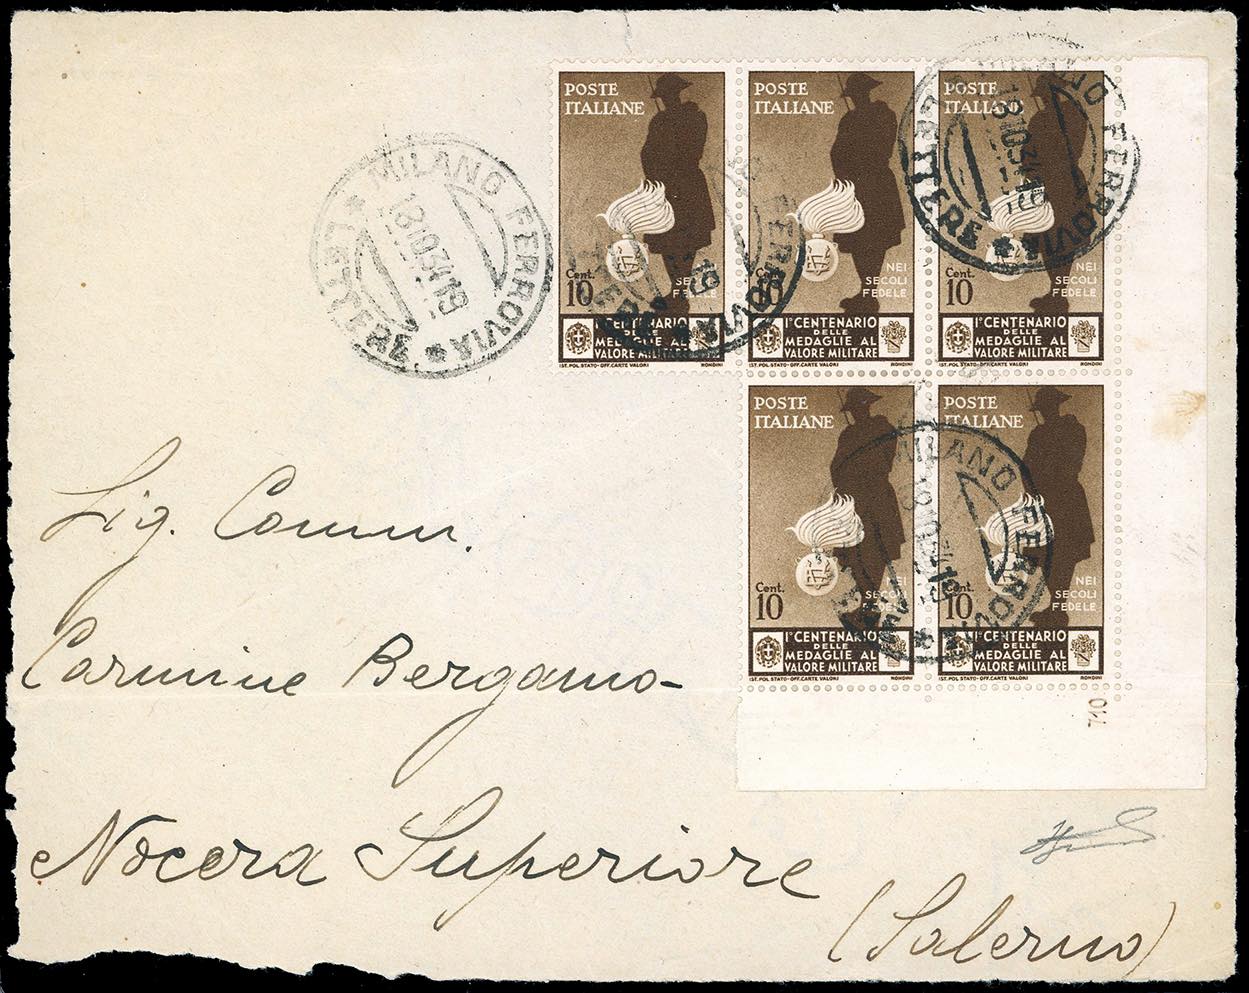 POSTE
ITALIANE
Cent.
10
NEI
SECOLI
FEDELE
Iº CENTENARIO
DELLE
MEDAGLIE AL
VALORE MILITARE
IST. POL. STATO-OFF. CARTE VALORI RONDINI
POSTE
ITALIANE
Cent.
10
NEI
SECOLI
FEDELE
Iº CENTENARIO
DELLE
MEDAGLIE AL
VALORE MILITARE
IST. POL. STATO-OFF. CARTE VALORI RONDINI
POSTE
ITALIANE
Cent.
10
NEI
SECOLI
FEDELE
Iº CENTENARIO
DELLE
MEDAGLIE AL
VALORE MILITARE
IST. POL. STATO-OFF. CARTE VALORI RONDINI
MILANO FERROVIA * LETTERE *
18 10 34 19
MILANO FERROVIA * LETTERE *
18 10 34 19
FERROVIA
19
POSTE
ITALIANE
Cent.
10
NEI
SECOLI
FEDELE
Iº CENTENARIO
DELLE
MEDAGLIE AL
VALORE MILITARE
IST. POL. STATO-OFF. CARTE VALORI RONDINI
POSTE
ITALIANE
Cent.
10
NEI
SECOLI
FEDELE
Iº CENTENARIO
DELLE
MEDAGLIE AL
VALORE MILITARE
IST. POL. STATO-OFF. CARTE VALORI RONDINI
MILANO FERROVIA
710
Sig. Comm.
Carmine Bergamo-
Nocera Superiore
(Salerno)